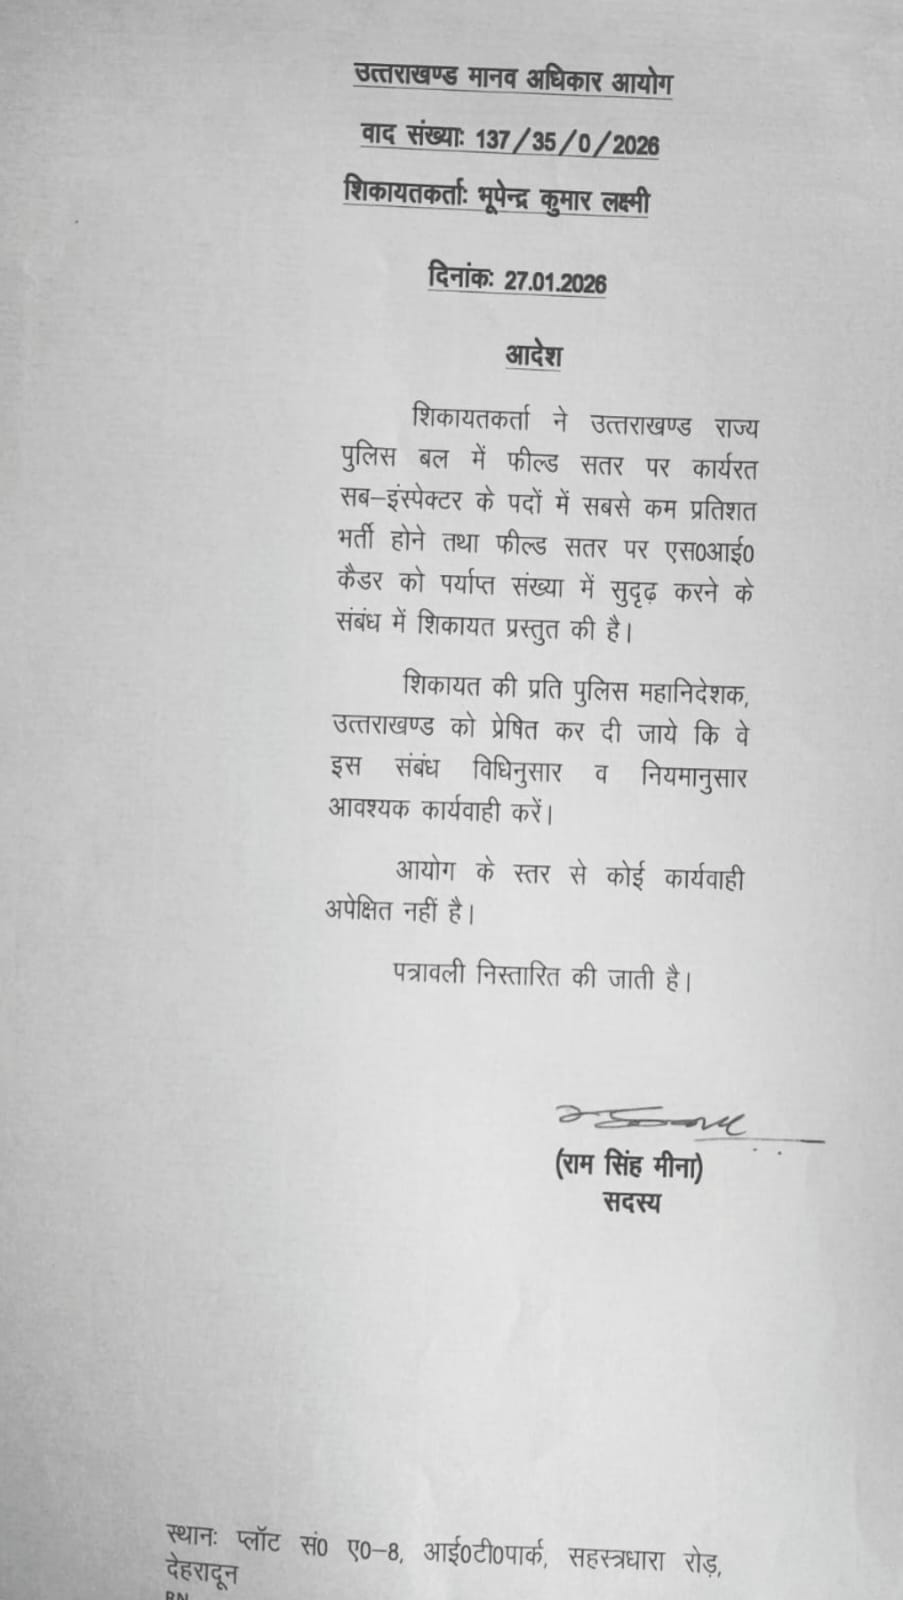 उत्तराखण्ड मानव अधिकार आयोग
वाद संख्याः 137/35/0/2026
शिकायतकर्ताः भूपेन्द्र कुमार लक्ष्मी
दिनांकः 27.01.2026
आदेश
शिकायतकर्ता ने उत्तराखण्ड राज्य
पुलिस बल में फील्ड सतर पर कार्यरत
सब–इंस्पेक्टर के पदों में सबसे कम प्रतिशत
भर्ती होने तथा फील्ड सतर पर एस0आई0
कैडर को पर्याप्त संख्या में सुदृढ़ करने के
संबंध में शिकायत प्रस्तुत की है।
शिकायत की प्रति पुलिस महानिदेशक,
उत्तराखण्ड को प्रेषित कर दी जाये कि वे
इस संबंध विधिनुसार व नियमानुसार
आवश्यक कार्यवाही करें।
आयोग के स्तर से कोई कार्यवाही
अपेक्षित नहीं है।
पत्रावली निस्तारित की जाती है।
(राम सिंह मीना)
सदस्य
स्थानः प्लॉट सं0 ए0–8, आई0टी0पार्क, सहस्त्रधारा रोड़,
देहरादून